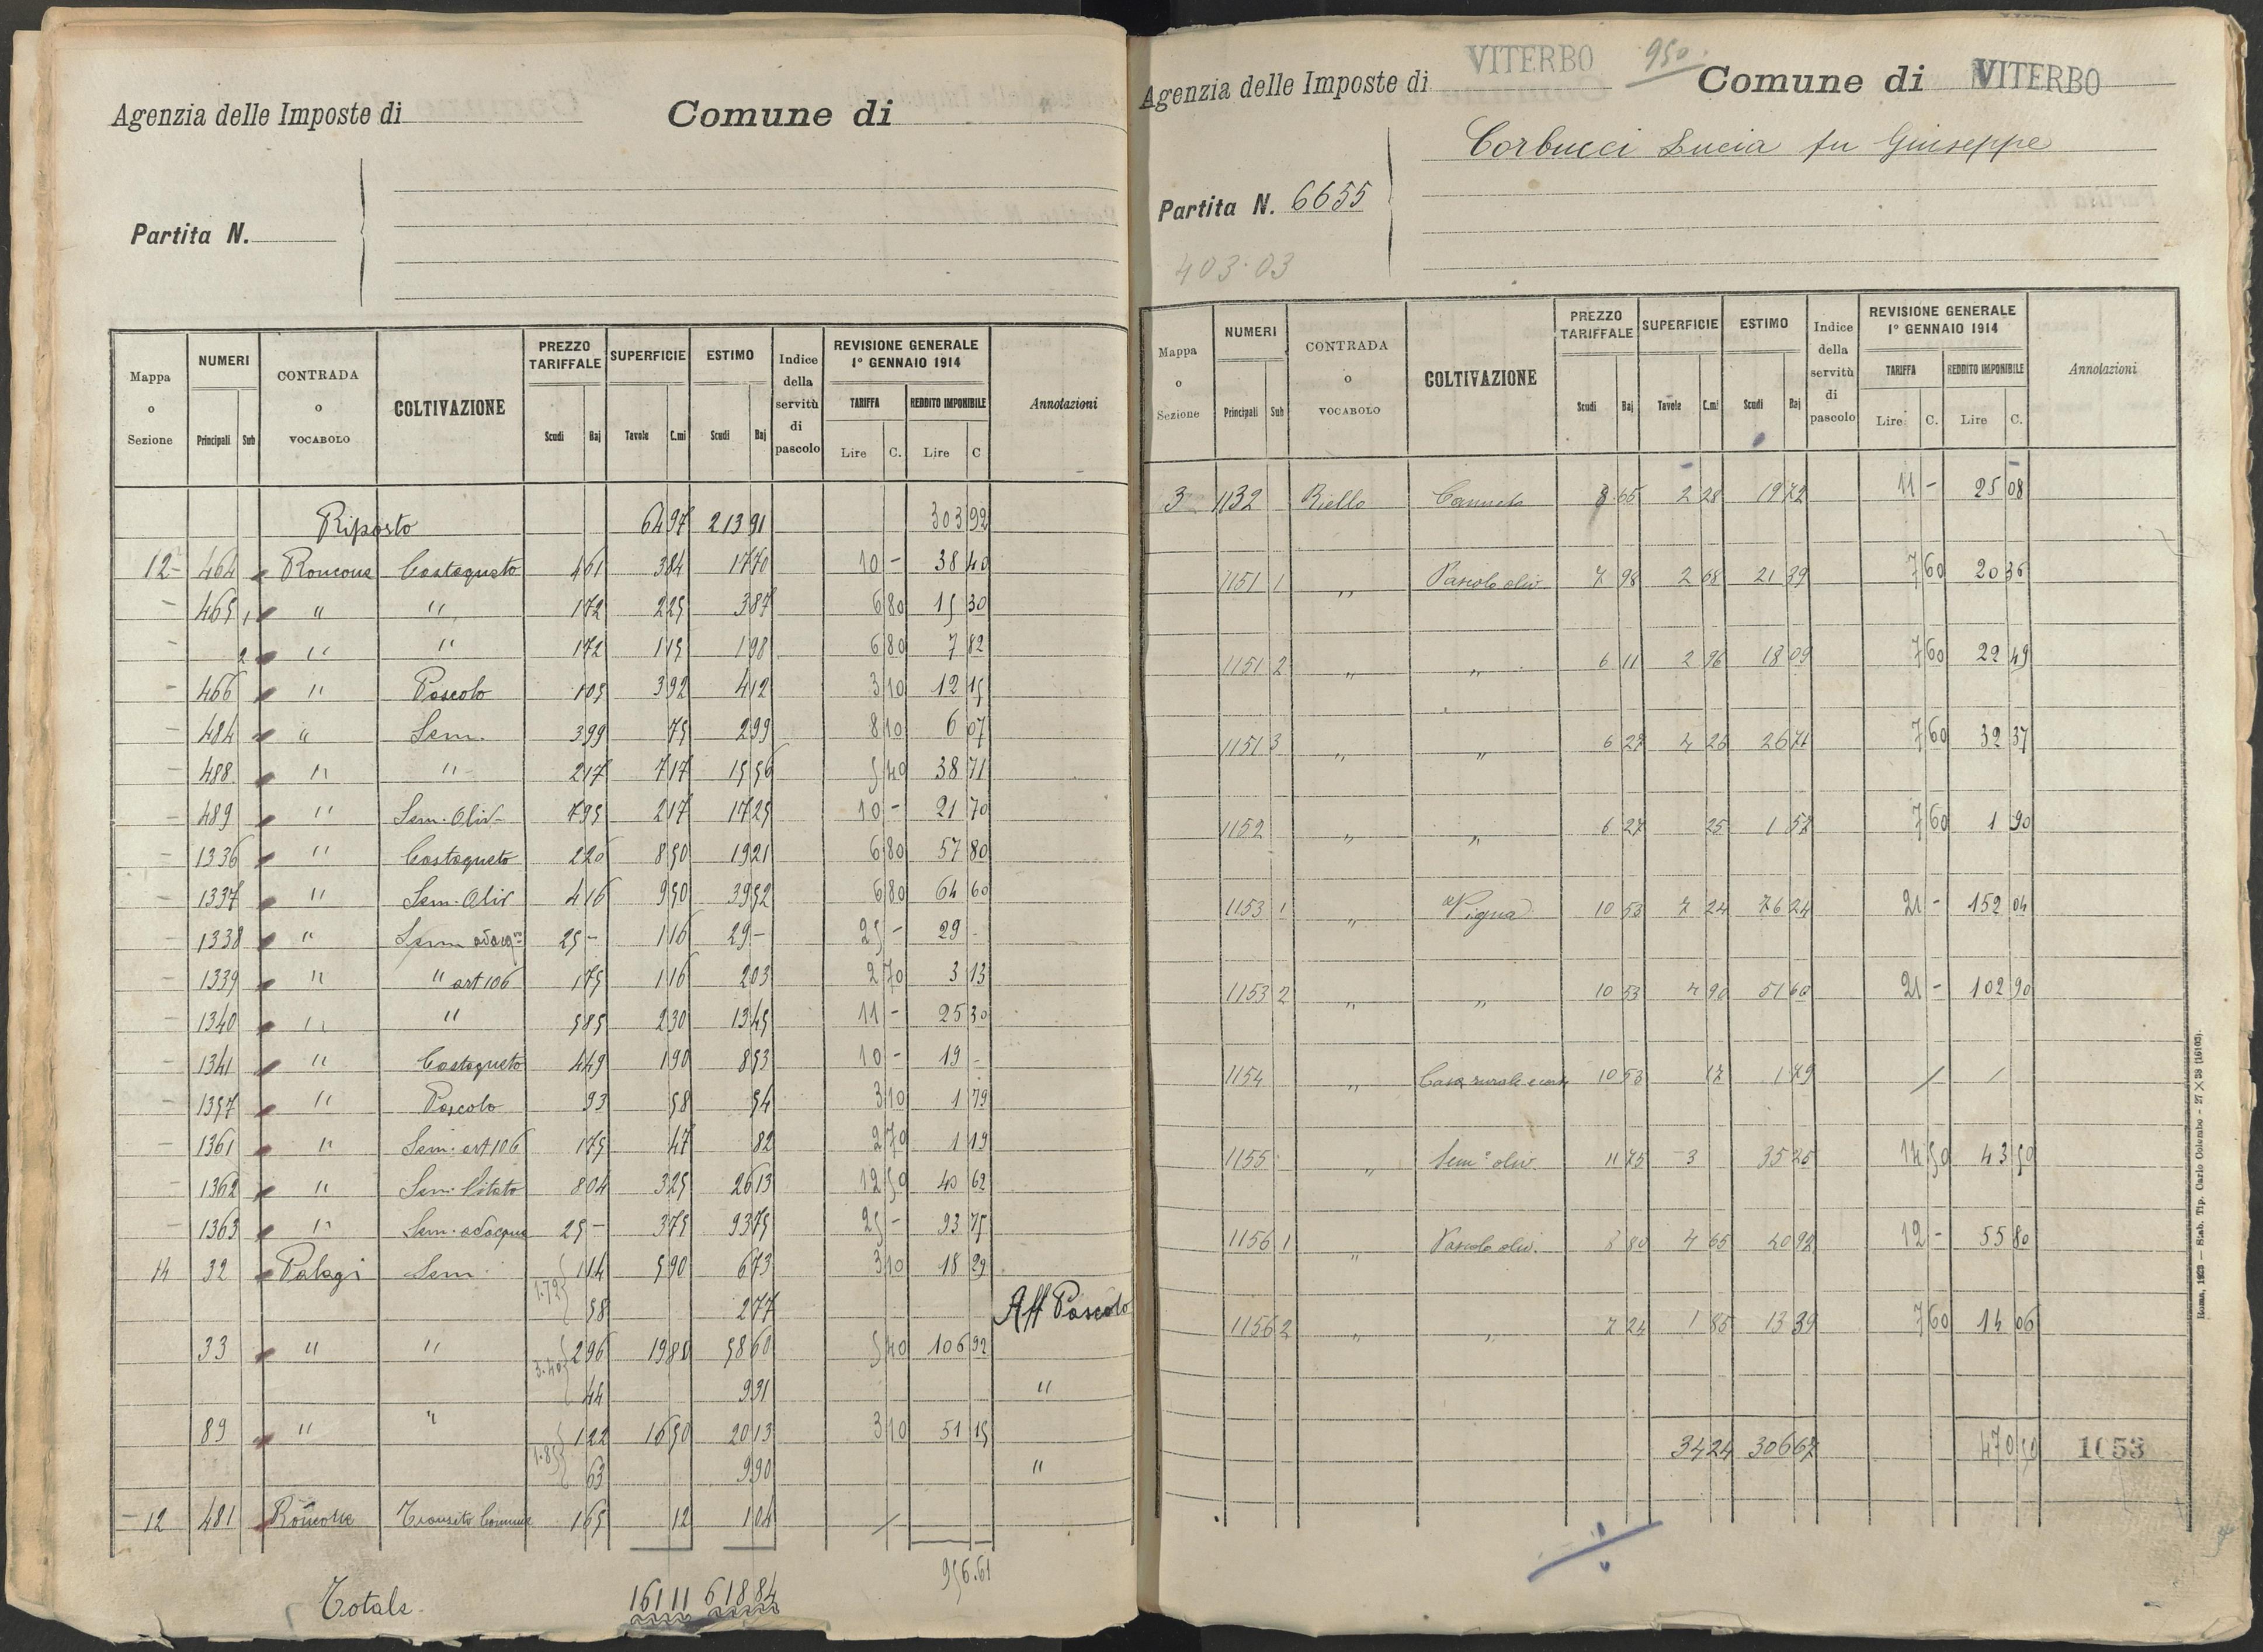 Agenzia delle Imposte di
Comune di
Partita N.
Mappa o Sezione | NUMERI Principali Sub | CONTRADA o VOCABOLO | COLTIVAZIONE | PREZZO TARIFFALE Scudi Baj | SUPERFICIE Tavole C.mi | ESTIMO Scudi Baj | Indice della servitù di pascolo | REVISIONE GENERALE 1° GENNAIO 1914 TARIFFA Lire C. REDDITO IMPONIBILE Lire C | Annotazioni
Riposto 64 97 213 91 303 92
12 464 Roncone Castagneto 4 61 3 84 17 70 10 - 38 40
- 465 1 " " 1 72 2 25 3 87 6 80 15 30
- 2 " " 1 72 1 15 1 98 6 80 7 82
- 466 " Pascolo 1 05 3 92 4 12 3 10 12 15
- 484 " Sem. 3 99 75 2 99 8 10 6 07
- 488 " " 2 17 7 17 15 56 5 40 38 71
- 489 " Sem. Oliv. 7 95 2 17 17 25 10 - 21 70
- 1336 " Castagneto 2 26 8 50 19 21 6 80 57 80
- 1337 " Sem. Oliv 4 16 9 50 39 52 6 80 64 60
- 1338 " Sem adacq 25 - 1 16 29 - 25 - 29 -
- 1339 " " art 106 1 75 1 16 2 03 2 70 3 13
- 1340 " " 5 85 2 30 13 45 11 - 25 30
- 1341 " Castagneto 4 49 1 90 8 53 10 - 19 -
- 1357 " Pascolo 93 58 54 3 10 1 79
- 1361 " Sem. art 106 1 75 47 82 2 70 1 19
- 1362 " Sem. Vitato 8 04 3 25 26 13 12 50 40 62
- 1363 " Sem. adacqua 25 - 3 75 93 75 25 - 93 75
14 32 Palagi Sem. 1.72 1 14 5 90 6 73 3 10 18 29
58 2 77 Aff Pascolo
33 " " 3.40 2 96 19 80 58 60 5 40 106 92
44 9 31 "
89 " " 1.85 1 22 16 50 20 13 3 10 51 15
63 9 90 "
- 12 481 Roncone Transito Comune 1 65 12 1 04 /
956.61
Totale 161 11 618 84
Agenzia delle Imposte di VITERBO 950. Comune di VITERBO
Corbucci Lucia fu Giuseppe
Partita N. 6655
403.03
Mappa o Sezione | NUMERI Principali Sub | CONTRADA o VOCABOLO | COLTIVAZIONE | PREZZO TARIFFALE Scudi Baj | SUPERFICIE Tavole C.mi | ESTIMO Scudi Baj | Indice della servitù di pascolo | REVISIONE GENERALE 1° GENNAIO 1914 TARIFFA Lire C. REDDITO IMPONIBILE Lire C. | Annotazioni
3 1132 Riello Canneto 8 65 2 28 19 72 11 - 25 08
1151 1 " Pascolo oliv. 7 98 2 68 21 39 7 60 20 36
1151 2 " " 6 11 2 96 18 09 7 60 22 49
1151 3 " " 6 27 4 26 26 71 7 60 32 37
1152 " " 6 27 25 1 57 7 60 1 90
1153 1 " Vigna 10 53 7 24 76 24 21 - 152 04
1153 2 " " 10 53 4 90 51 60 21 - 102 90
1154 " Casa rurale e corte 10 53 17 1 79 / /
1155 " Sem.º oliv. 11 75 3 35 25 14 50 43 50
1156 1 " Pascolo oliv. 8 80 4 65 40 92 12 - 55 80
1156 2 " " 7 24 1 85 13 39 7 60 14 06
34 24 306 67 470 50 1053
Roma, 1923 — Stab. Tip. Carlo Colombo - 27 × 38 (16103).